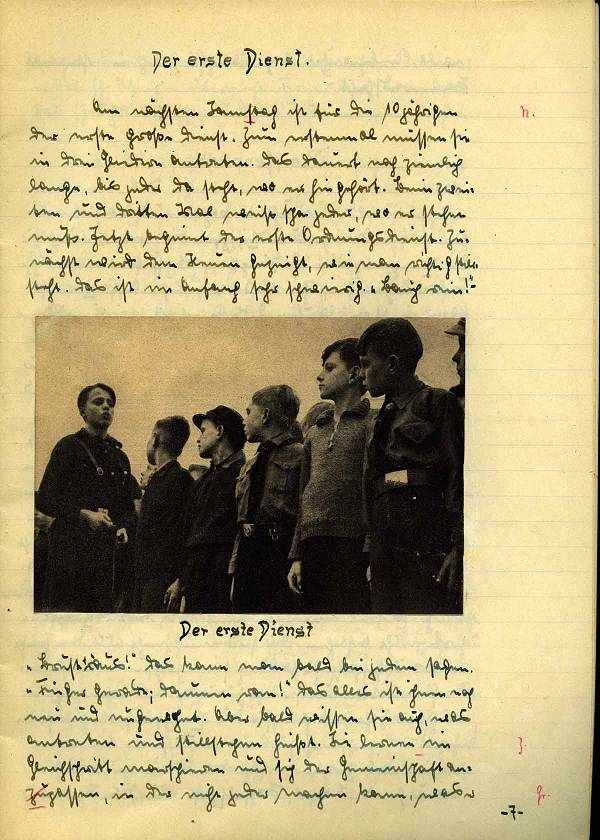 Der erste Dienst.
Am nächsten Samstag ist für die 10jährigen
der erste große Dienst. Zum erstenmal müssen sie
in drei Gliedern antreten. Das dauert noch ziemlich
lange, bis jeder da steht, wo er hingehört. Beim zwei-
ten und dritten Mal weiß schon jeder, wo er stehen
muß. Jetzt beginnt der erste Ordnungsdienst. Zu-
nächst wird dem Neuen gezeigt, wie man richtig still-
steht. Das ist im Anfang sehr schwierig. „Bauch rein!“
Der erste Dienst
„Brust 'raus!“ Das kann man bald bei jedem sagen.
„Finger gerade, Daumen ran!“ Das alles ist ihnen noch
neu und ungewohnt. Aber bald wissen sie auch, was
antreten und stillstehen heißt. Sie lernen im
Gleichschritt marschieren und sich der Gemeinschaft an-
zupassen, in der nicht jeder machen kann, was er
-7-